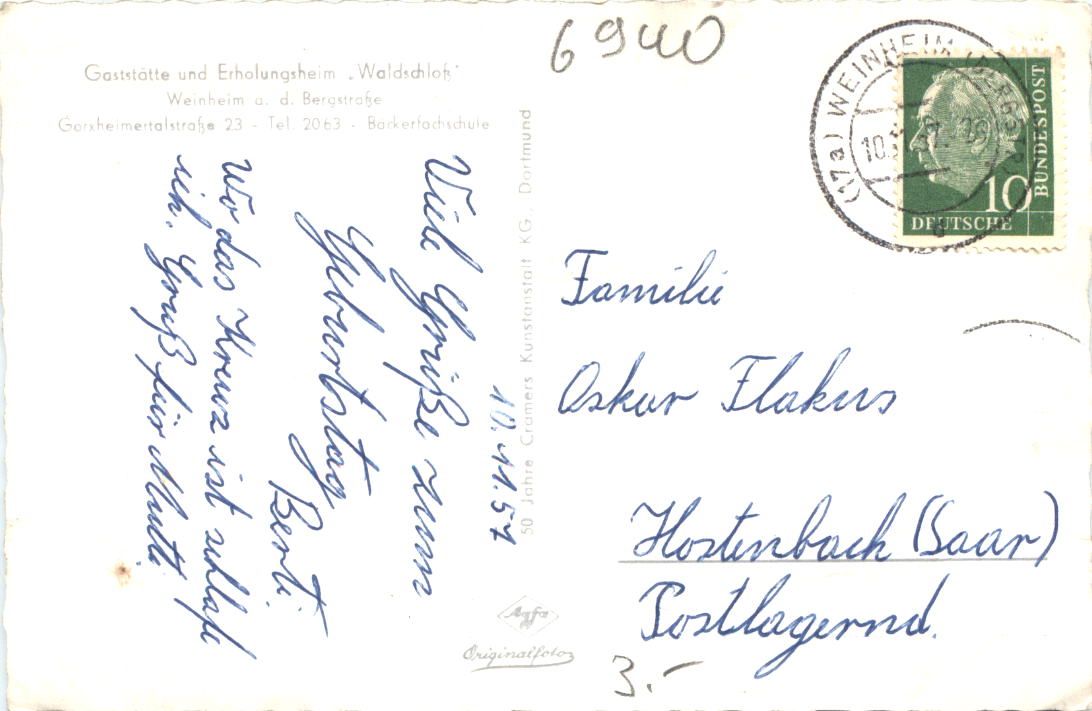 Gaststätte und Erholungsheim „Waldschloß"
Weinheim a. d. Bergstraße
Gorxheimertalstraße 23 - Tel. 2063 - Bäckerfachschule
10.11.57
Viele Grüße zum
Geburtstag
Berti.
Wo das Kreuz ist schlafe
ich. Gruß für Mutti
50 Jahre Cramers Kunstanstalt KG, Dortmund
Agfa
Originalfoto
6940
(17a) WEINHEIM (BERGSTR)
10
DEUTSCHE
BUNDESPOST
Familie
Oskar Flakus
Hostenbach (Saar)
Postlagernd.
3.-